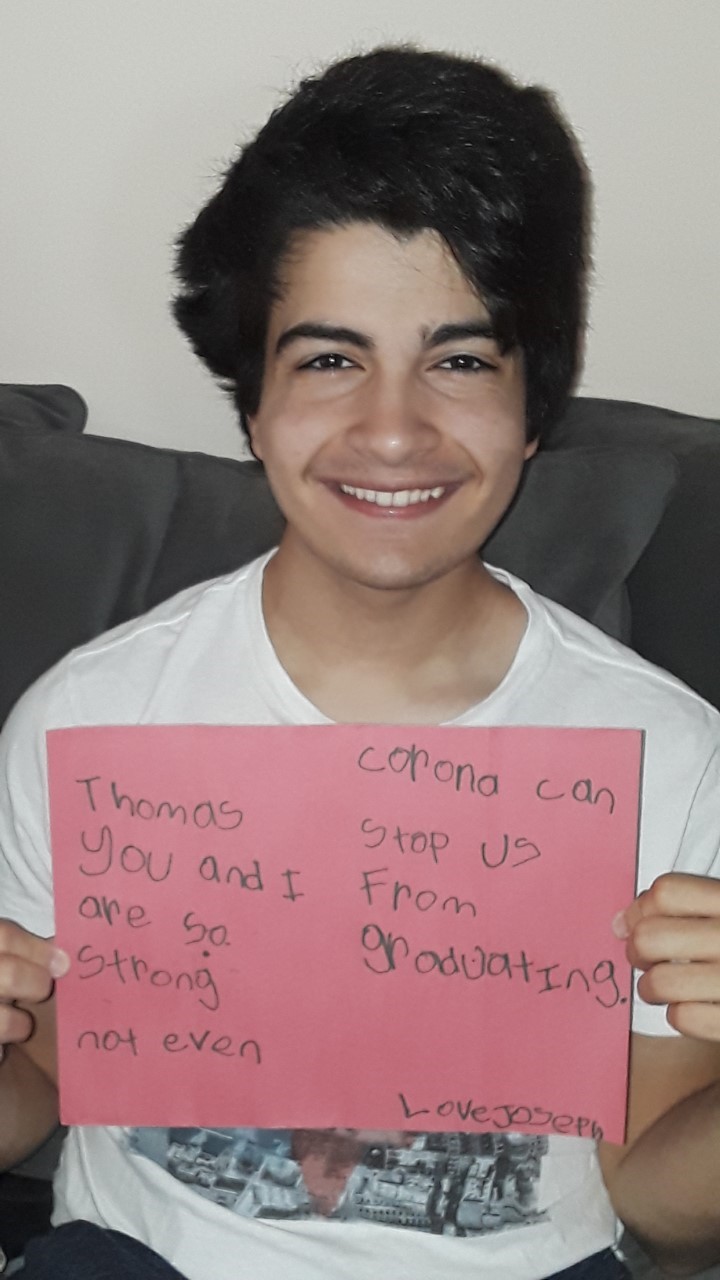 Thomas
You and I
are so
strong
not even
corona can
stop us
From
graduating.
Love Joseph